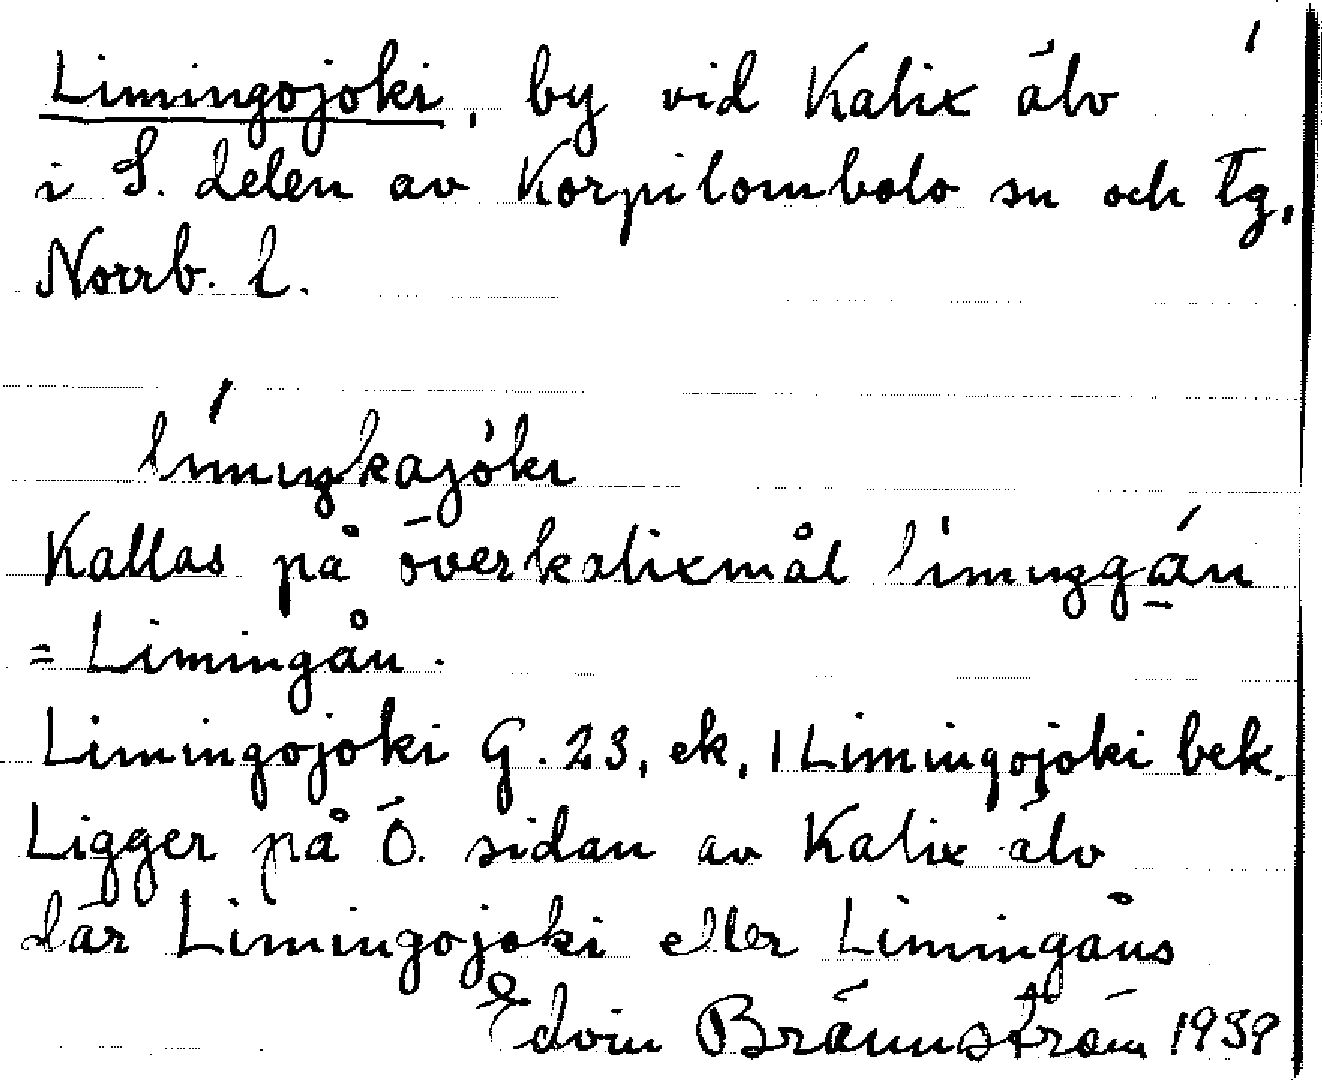 Limingojoki, by vid Kalix älv
i S. delen av Korpilombolo sn och tg,
Norrb. l.
límiŋkajòki
Kallas på överkalixmål límiŋgán
= Limingån.
Limingojoki G. 23, ek, 1 Limingojoki bek.
Ligger på Ö. sidan av Kalix älv
där Limingojoki eller Limingåns
Edvin Brännström 1939